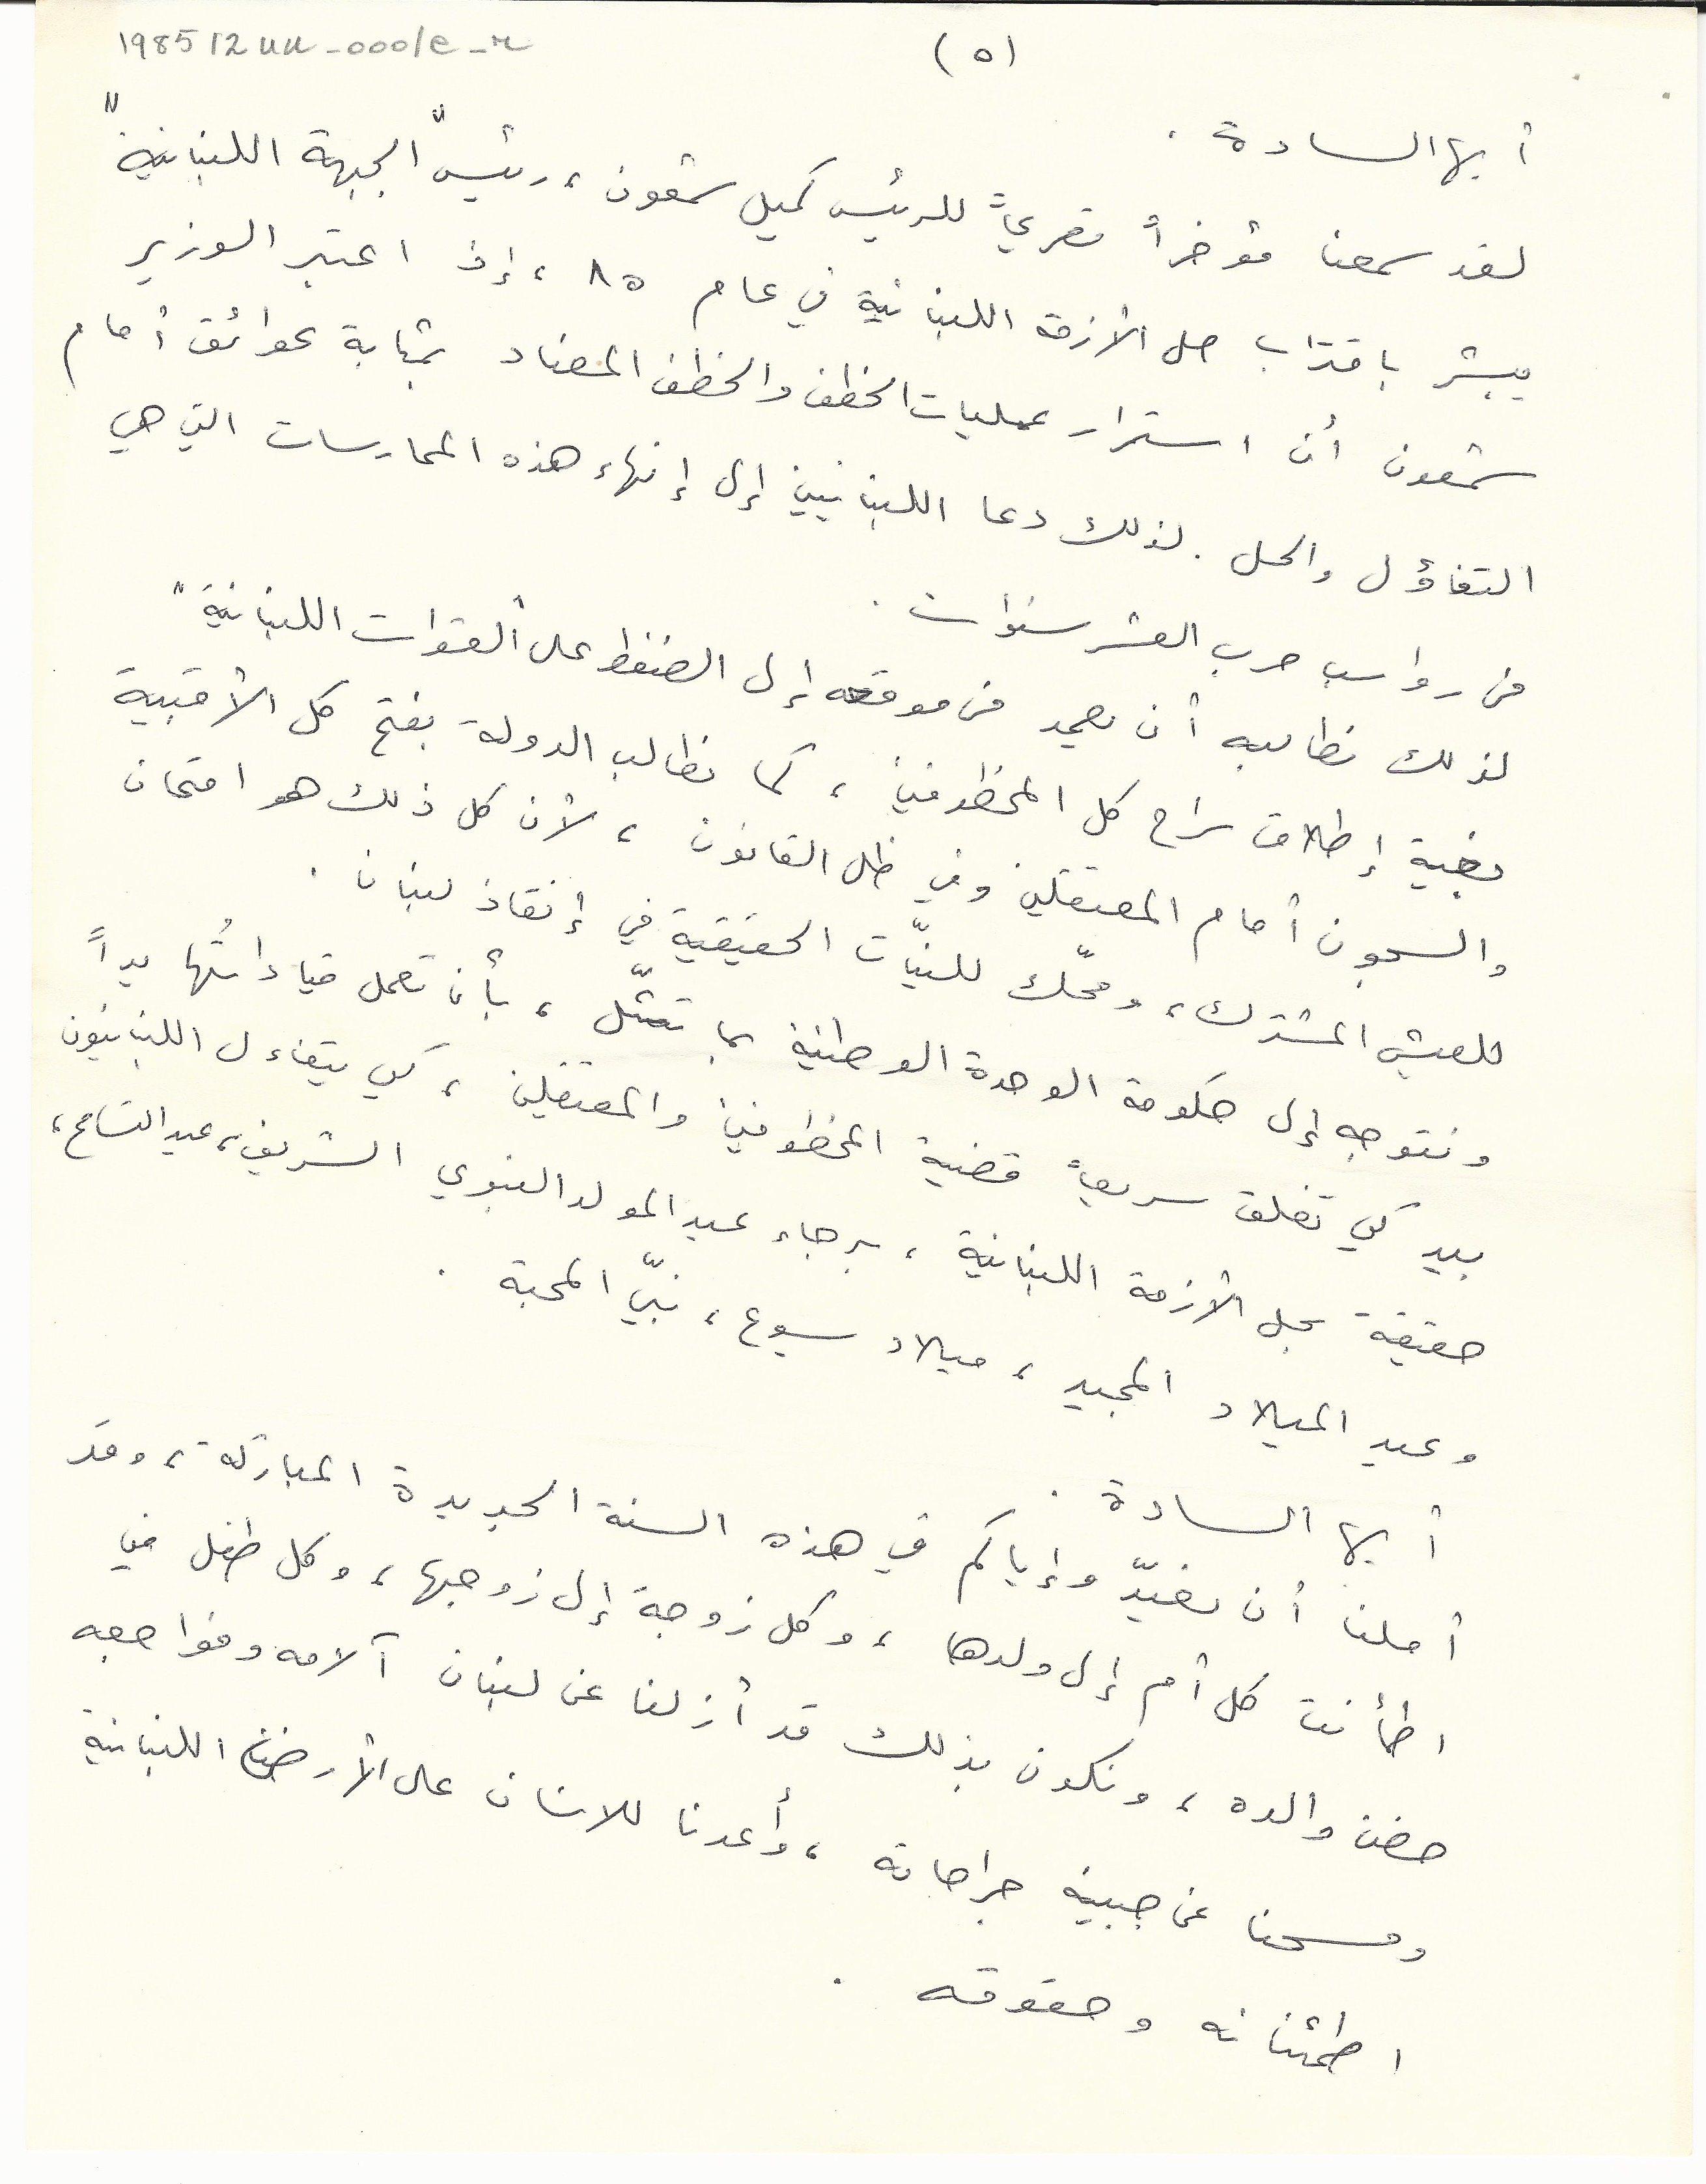 198512uu_0001e_r
(٥)
أيها السادة .
لقد سمعنا مؤخراً تصريحاً للرئيس كميل شمعون ، رئيس "الجبهة اللبنانية"
يبشر باقتراب حل الأزمة اللبنانية في عام ٨٥ ، إذ اعتبر الوزير
شمعون أن استمرار عمليات الخطف والخطف المضاد بمثابة عوائق أمام
التفاؤل والحل . لذلك دعا اللبنانيين إلى إنهاء هذه الممارسات التي هي
من رواسب حرب العشر سنوات .
لذلك نطالبه أن يعمد من موقعه إلى الضغط على "القوات اللبنانية"
بغية إطلاق سراح كل المخطوفين ، كما نطالب الدولة بفتح كل الأقبية
والسجون أمام المعتقلين وفي ظل القانون ، لأن كل ذلك هو امتحان
للعيش المشترك ، ومحّك للنيّات الحقيقية في إنقاذ لبنان .
ونتوجه إلى حكومة الوحدة الوطنية بما تمثّل ، بأن تعمل قياداتُها يداً
بيد كي تغلق سريعاً قضية المخطوفين والمعتقلين ، كي يتفاءل اللبنانيون
حقيقة بحل الأزمة اللبنانية ، برجاء عيد المولد النبوي الشريف ، عيد التسامح ،
وعيد الميلاد المجيد ، ميلاد يسوع ، نبيّ المحبة .
أيها السادة .
أملنا أن نعيّد وإياكم في هذه السنة الجديدة المباركة ، وقد
اطمأنت كل أم إلى ولدها ، وكل زوجة إلى زوجها ، وكل طفل في
حضن والده ، ونكون بذلك قد أزلنا عن لبنان آلامه ومواجعه
ومسحنا عن جبينه جراحاته ، وأعدنا للانسان على الأرض اللبنانية
اطمئنانه وحقوقه .